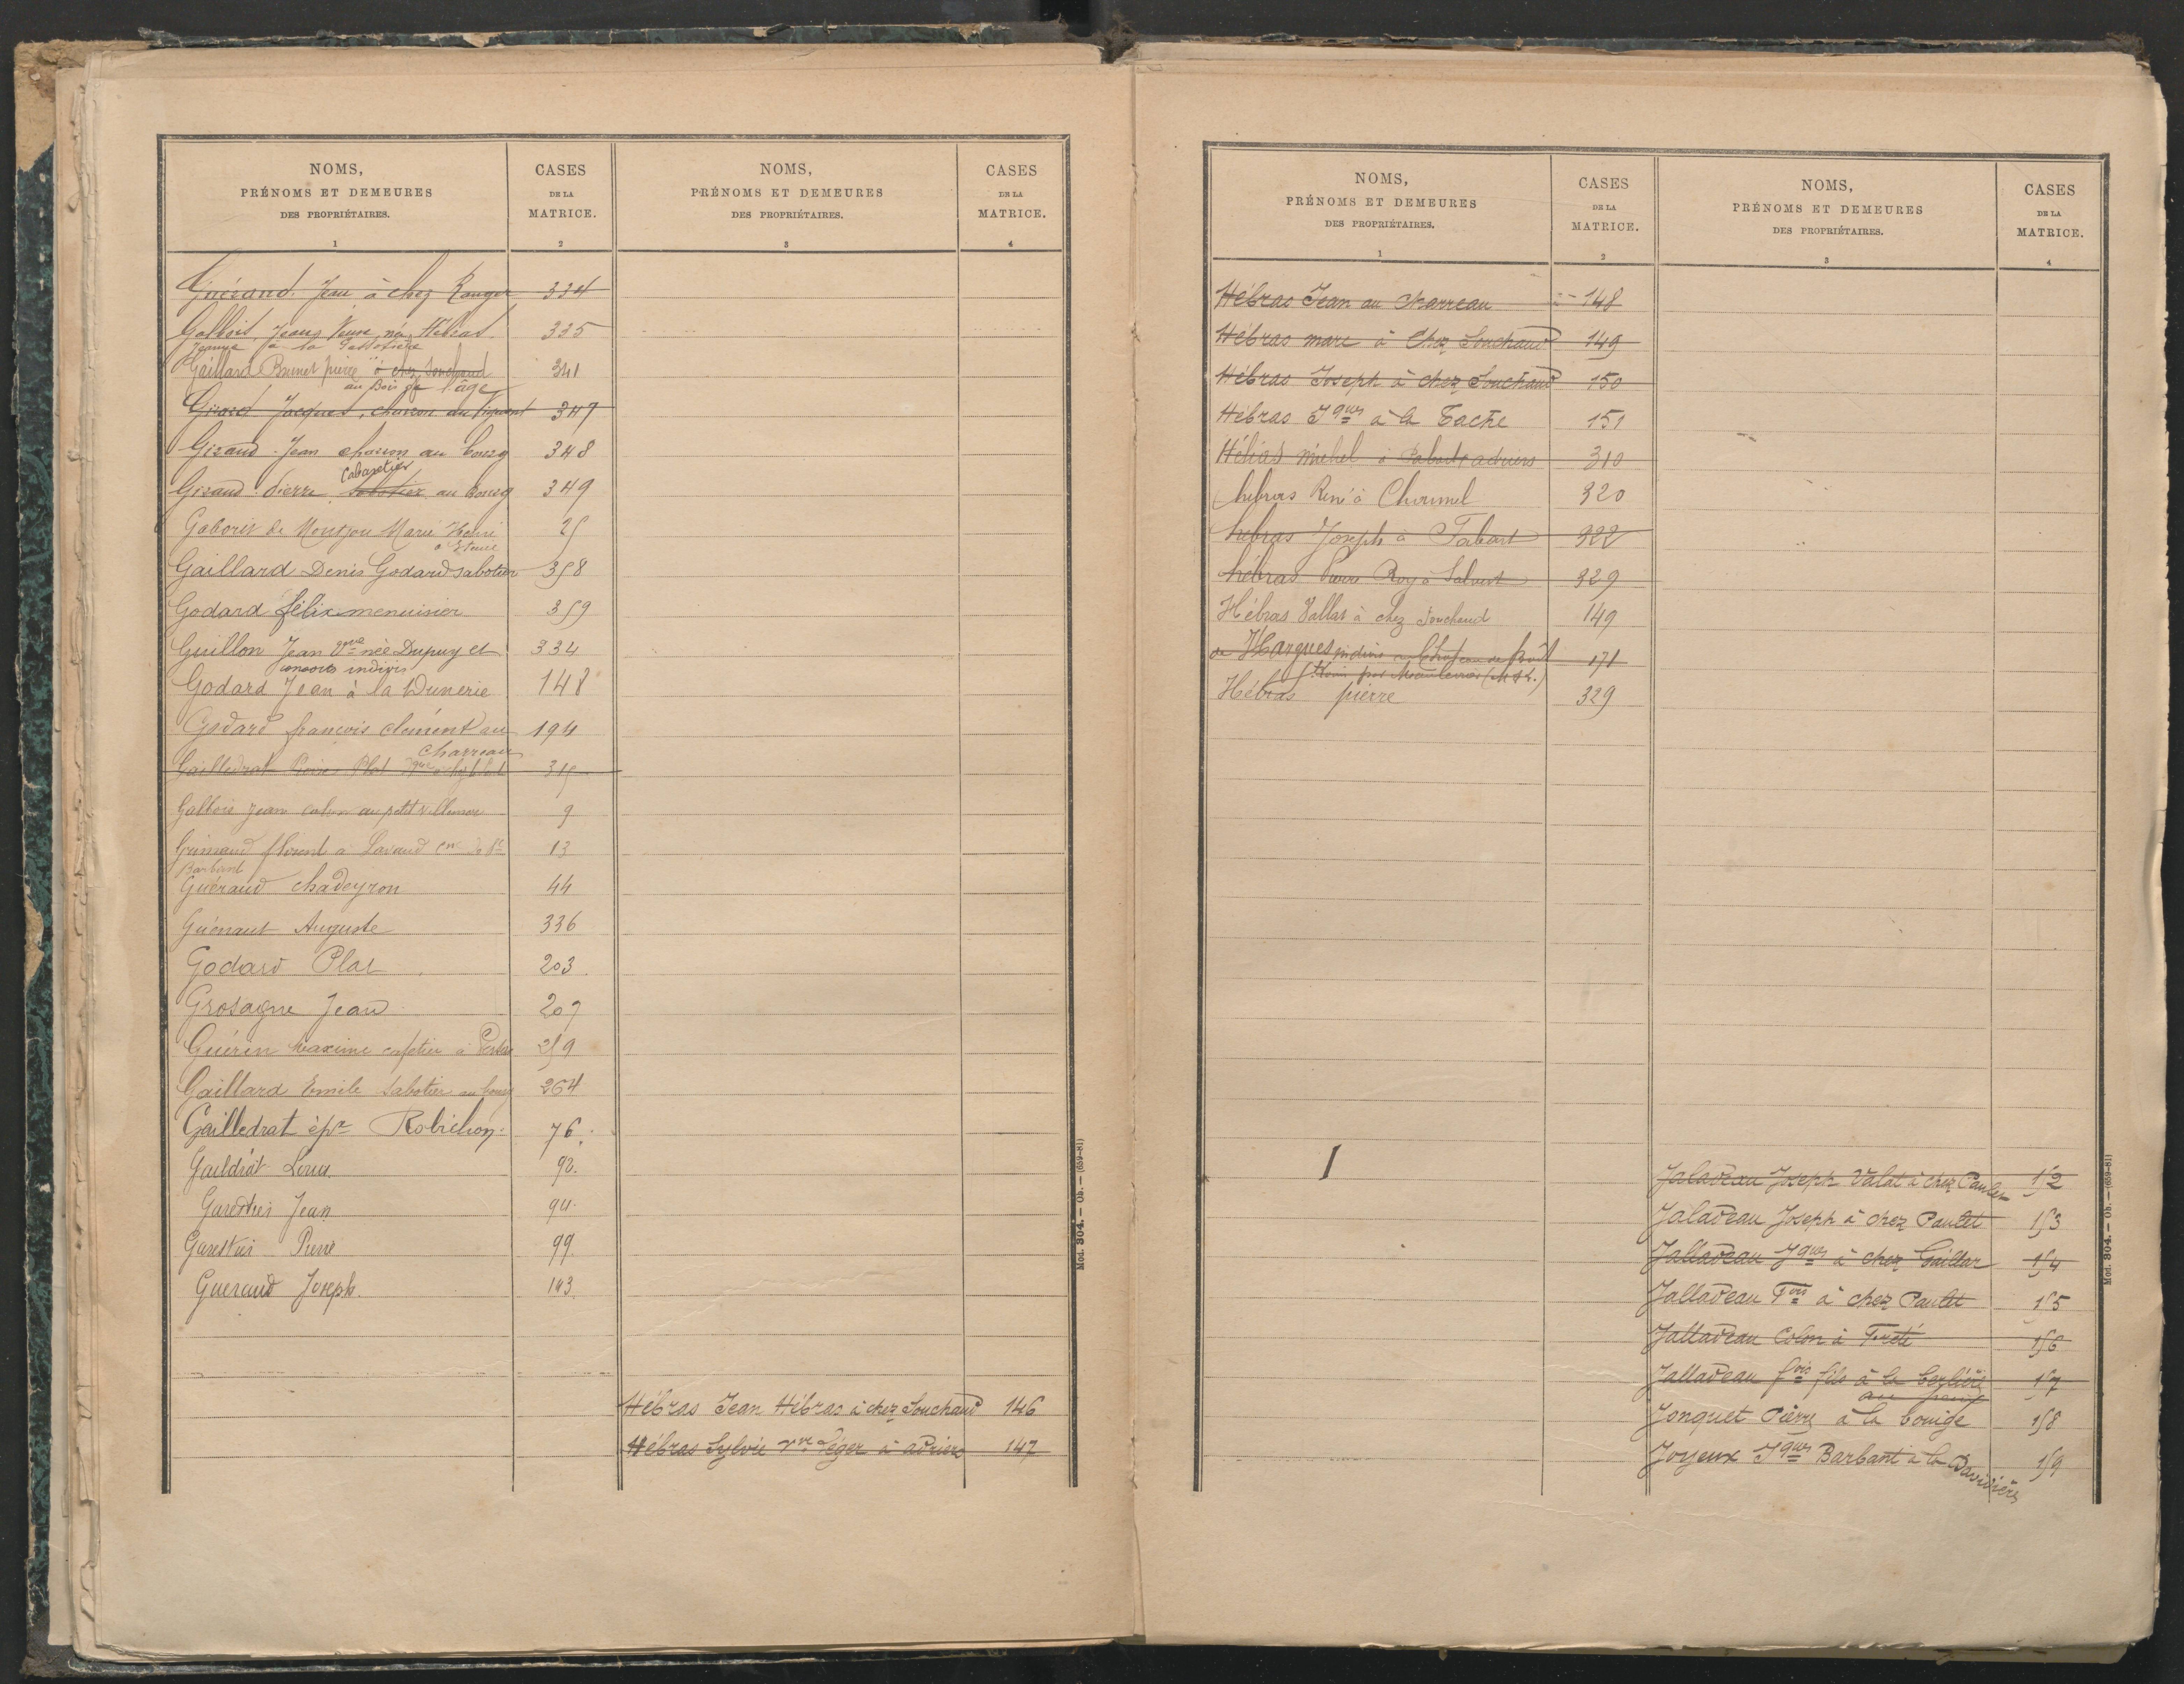 NOMS,
PRÉNOMS ET DEMEURES
DES PROPRIÉTAIRES.
1
CASES
DE LA
MATRICE.
2
NOMS,
PRÉNOMS ET DEMEURES
DES PROPRIÉTAIRES.
3
CASES
DE LA
MATRICE.
4
Guéraud Jean à chez Ranger 334
Gallois, Jeans Veuve née Hébras 335
Jeanne à la
Gaillard Brunet pierre à chez Souchaud 341
au Bois de l'âge
Girard Jacques, charron au 347
Giraud Jean charron au bourg 348
Cabaretier
Giraud Pierre sabotier au bourg 349
Gaborit de Montjou Marie Henri 25
à
Gaillard Denis Godard sabotier 358
Godard félix menuisier 359
Guillon Jean Vve née Dupuy et 334
consorts indivis
Godard Jean à la Wunerie 148
Godard francois clément au 194
Charreau
Gailledrat Pierre Plat 315
Gallois Jean colon au petit 9
Grimaud florent à Lavaud cne de St 13
Barbant
Guéraud chadeyron 44
Guéraut Auguste 336
Godard Plat 203
Grosagne Jean 207
Guérin Maxime cafetier à 259
Gaillard Emile Sabotier au bourg 264
Gailledrat épse Robichon 76
Gaildrat Louis 92.
Jean 94.
Pierre 99
Gueraud Joseph. 143
Hébras Jean Hébras à chez Souchaud 146
Hébras Sylvie vve Léger à adriers 147
Mod. 304. — Ob. — (659-81)
NOMS,
PRÉNOMS ET DEMEURES
DES PROPRIÉTAIRES.
1
CASES
DE LA
MATRICE.
2
NOMS,
PRÉNOMS ET DEMEURES
DES PROPRIÉTAIRES.
3
CASES
DE LA
MATRICE.
4
Hébras Jean au Charreau 148
Hébras marc à Chez Souchaud 149
Hébras Joseph à chez Souchaud 150
Hébras Jques à la Tache 151
Hélias michel à adriers 310
hebras René à Chermel 320
hebras Joseph à Tabart 322
hébras Pierre Roy à 329
Hébras Vallat à chez Souchaud 149
de Marques indivis au Château de 171
Hébras pierre 329
I
Jaladeau Joseph Valat à chez Paulet 152
Jaladeau Joseph à chez Paulet 153
Jalladeau Jques à chez Gaillar 154
Jalladeau Fois à chez Paulet 155
Jalladeau Colon à 156
Jalladeau fois fils à la 157
au
Jonquet Pierre à la bouige 158
Joyeux Jques Barbant à la Davidière 159
Mod. 304. — Ob. — (659-81)